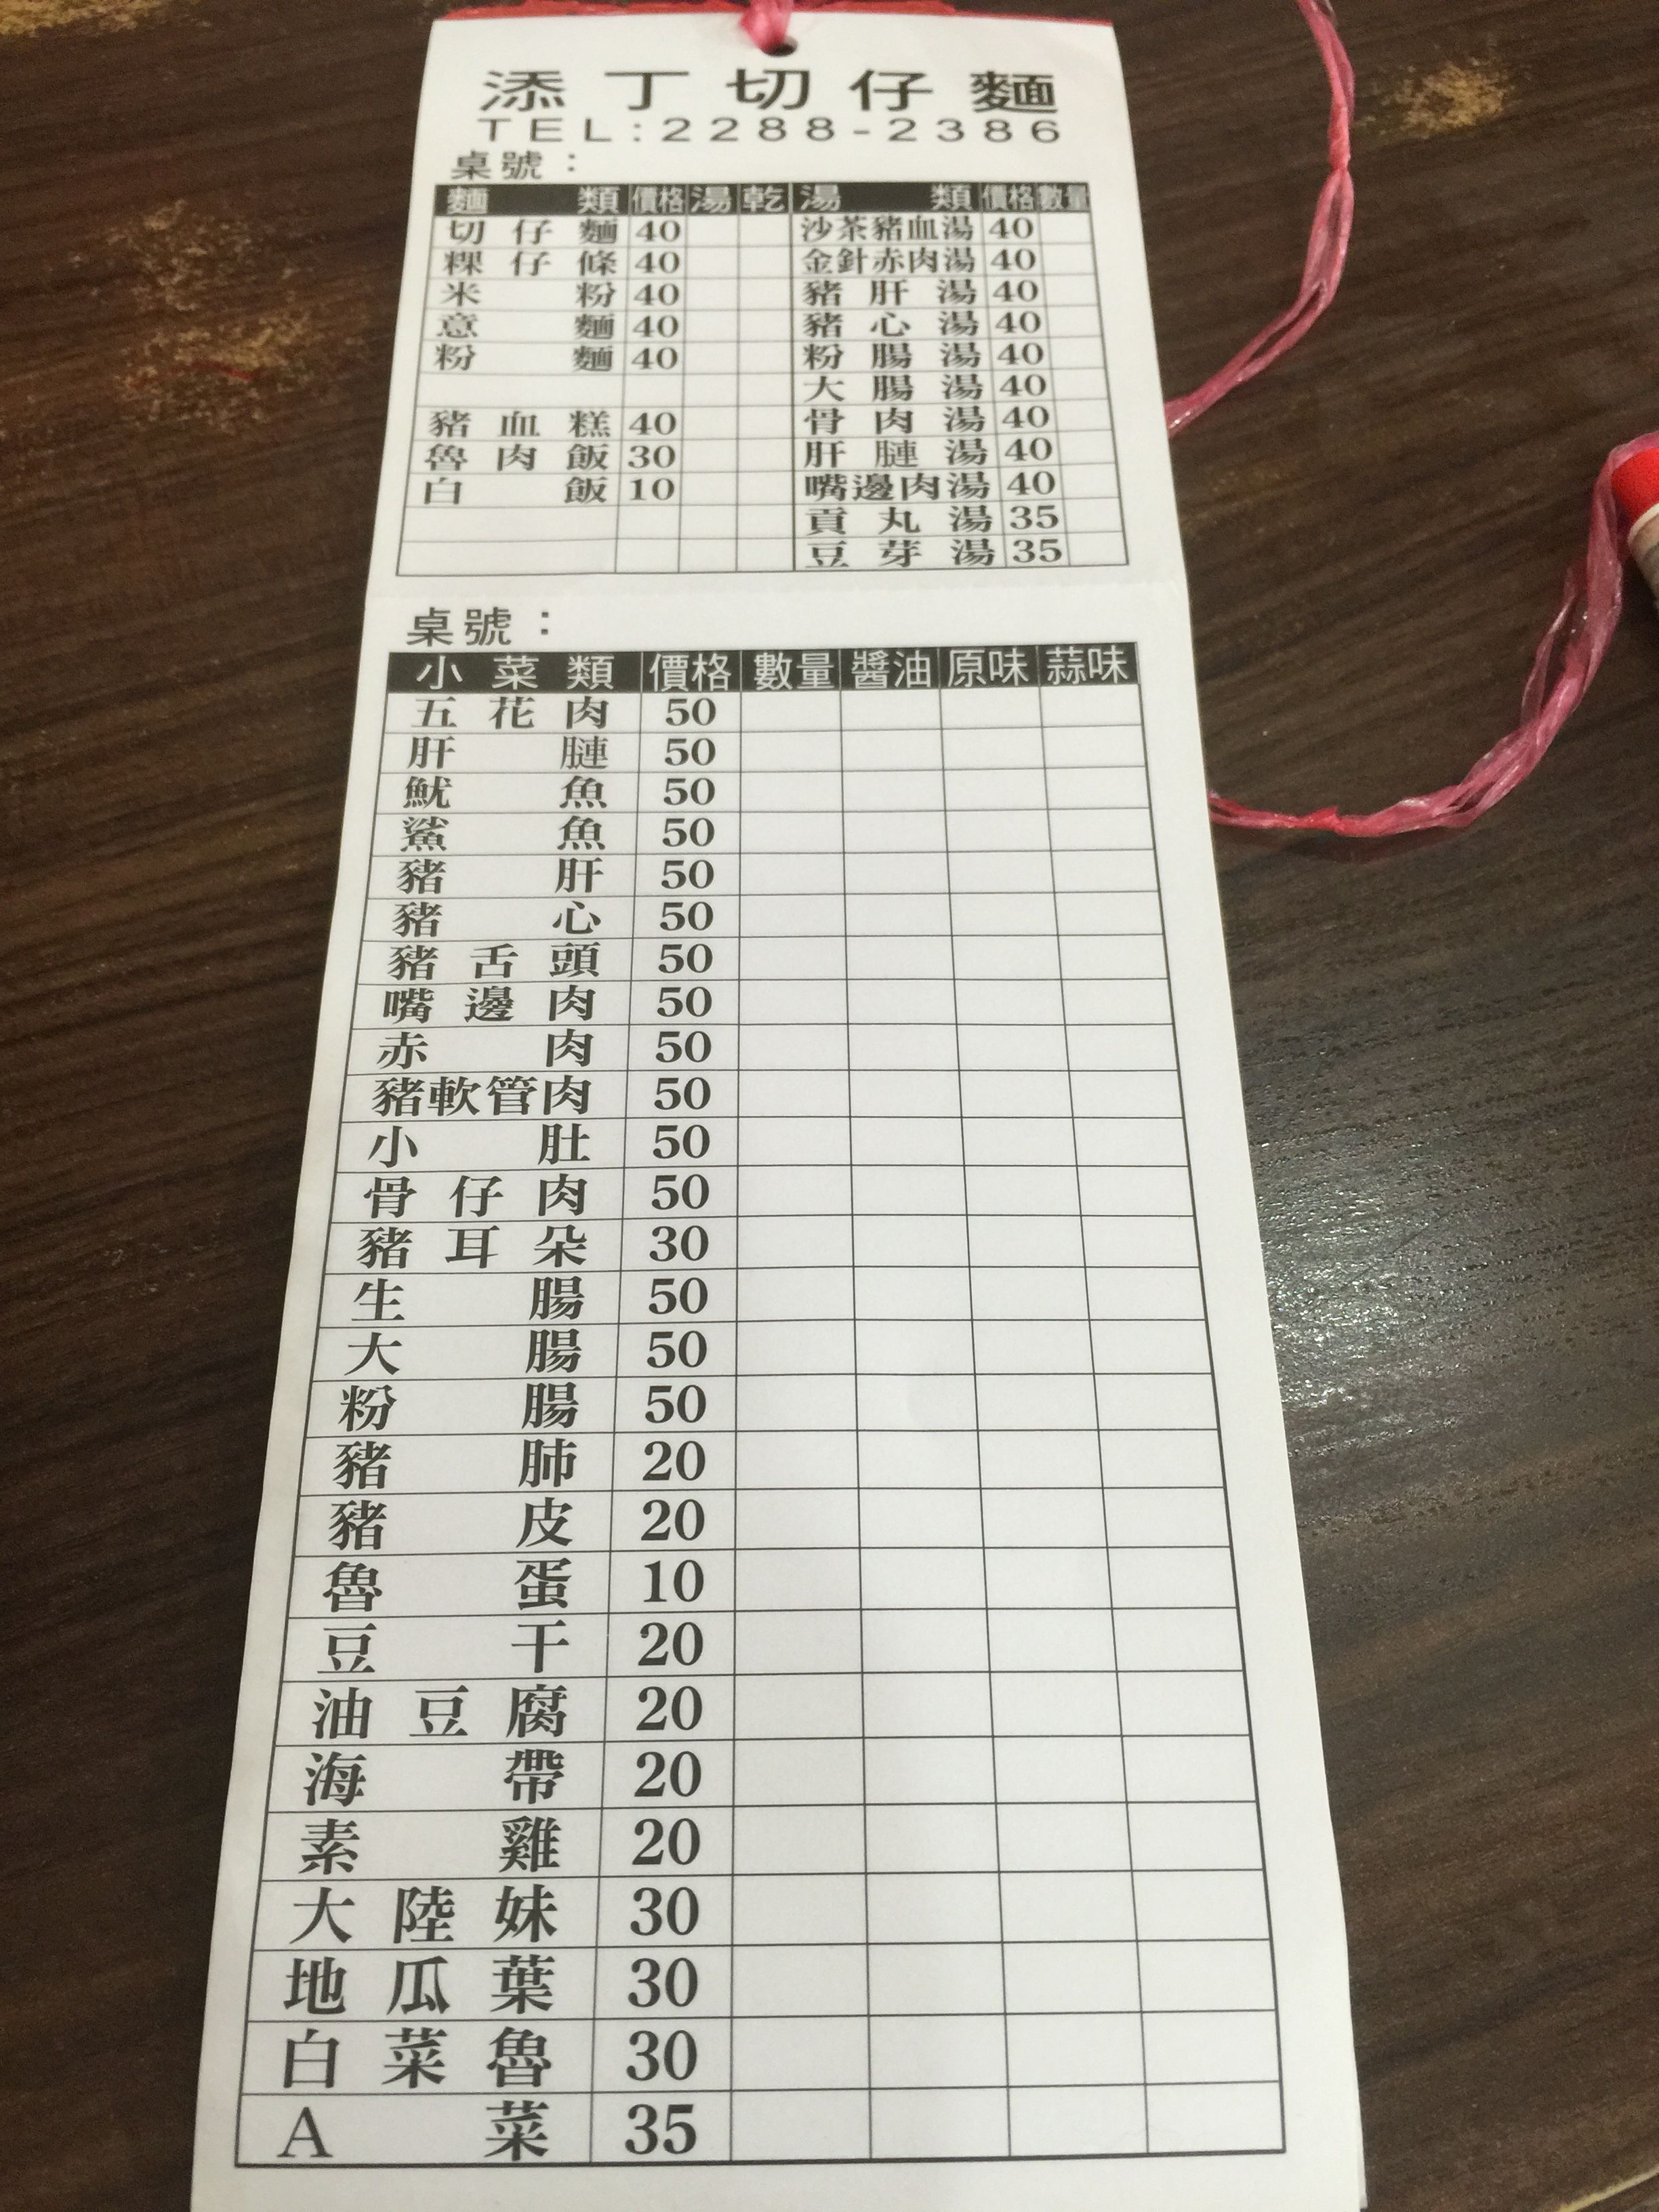 添丁切仔麵
TEL:2288-2386
桌號：
麵類 價格 湯 乾 湯類 價格 數量
切仔麵 40 沙茶豬血湯 40
粿仔條 40 金針赤肉湯 40
米粉 40 豬肝湯 40
意麵 40 豬心湯 40
粉麵 40 粉腸湯 40
大腸湯 40
豬血糕 40 骨肉湯 40
魯肉飯 30 肝膢湯 40
白飯 10 嘴邊肉湯 40
貢丸湯 35
豆芽湯 35
桌號：
小菜類 價格 數量 醬油 原味 蒜味
五花肉 50
肝膢 50
魷魚 50
鯊魚 50
豬肝 50
豬心 50
豬舌頭 50
嘴邊肉 50
赤肉 50
豬軟管肉 50
小肚 50
骨仔肉 50
豬耳朵 30
生腸 50
大腸 50
粉腸 50
豬肺 20
豬皮 20
魯蛋 10
豆干 20
油豆腐 20
海帶 20
素雞 20
大陸妹 30
地瓜葉 30
白菜魯 30
A菜 35